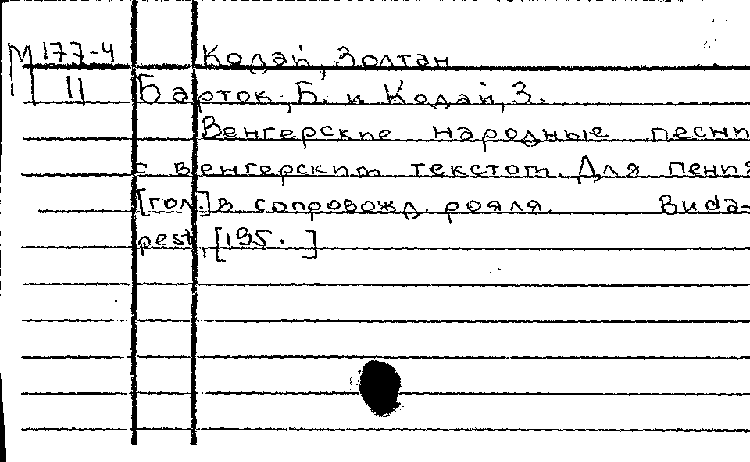 М 177-4 Кодай, Золтан
II Барток, Б. и Кодай, З.
Венгерские народные песни
с венгерским текстом. Для пения
[гол.] в сопровожд. рояля. Buda-
pest, [195. ]